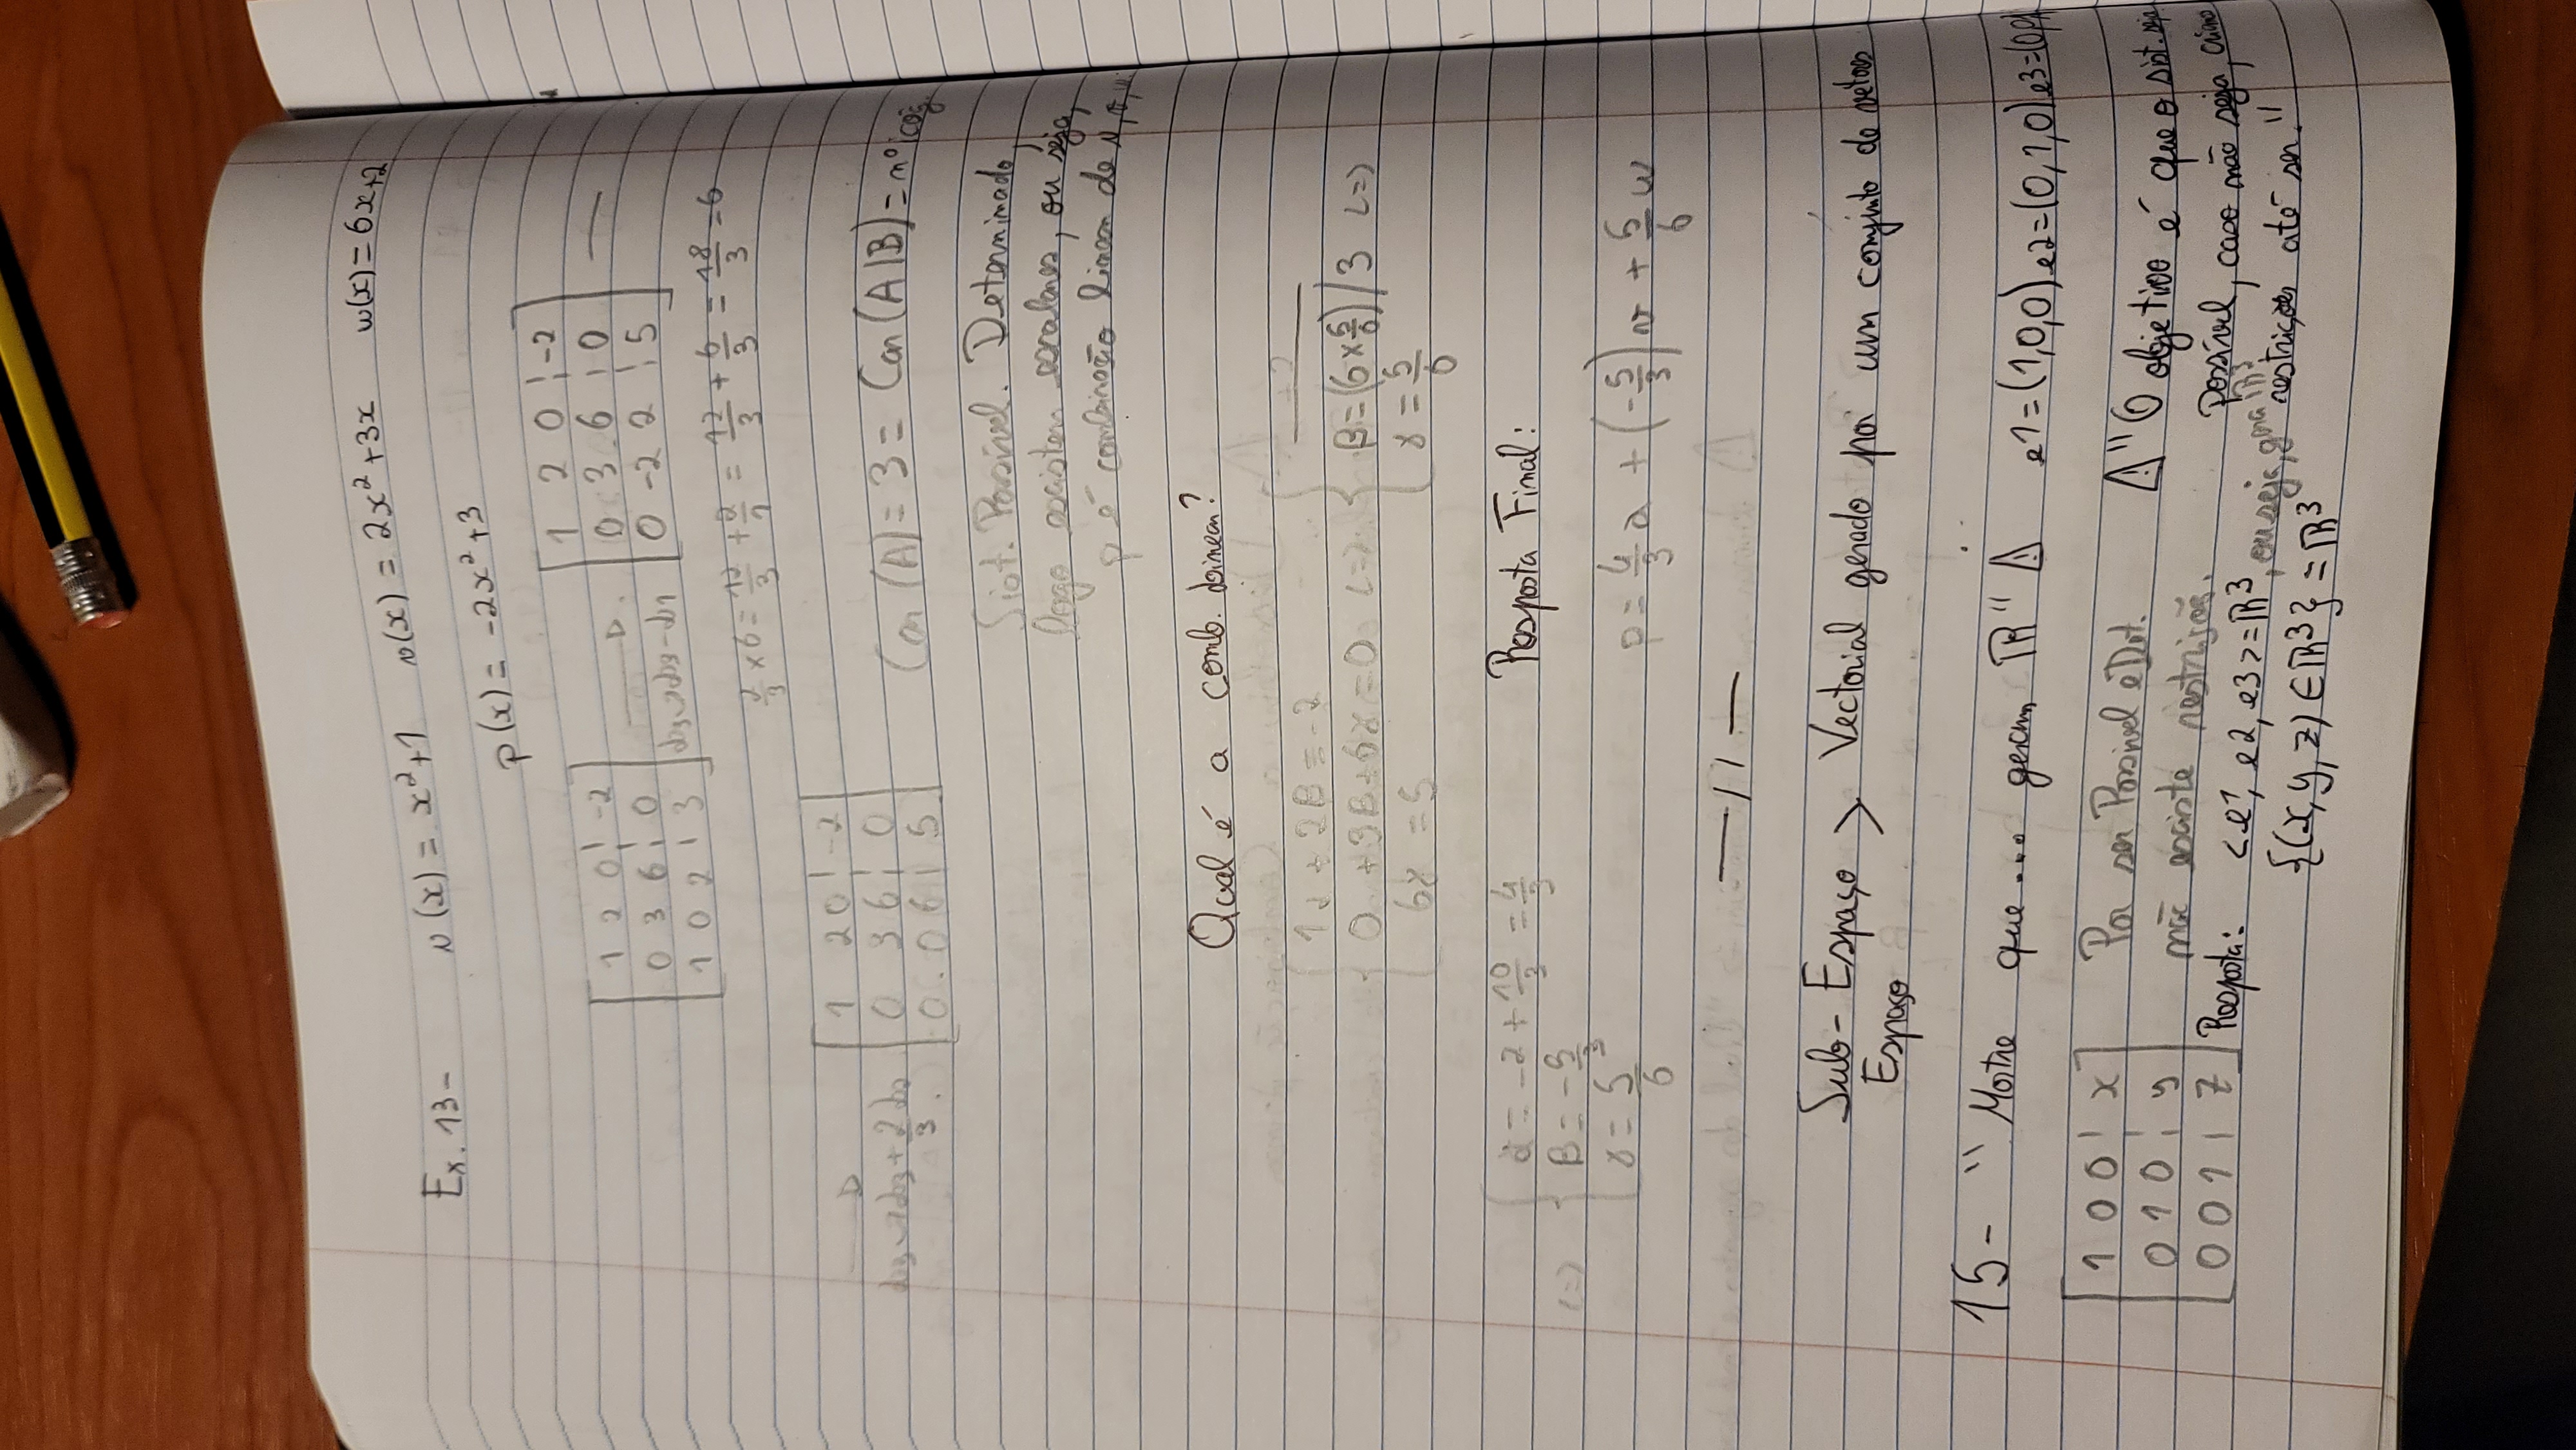 Ex. 13- u(x) = x²+1 v(x) = 2x²+3x w(x) = 6x+2
p(x) = -2x²+3
[1 2 0 ¦ -2
0 3 6 ¦ 0
1 0 2 ¦ 3]
L3->L3-L1
[1 2 0 ¦ -2
0 3 6 ¦ 0
0 -2 2 ¦ 5]
2/3 × 6 = 12/3 + 2/1 = 12/3 + 6/3 = 18/3 = 6
L3->L3+2/3 L2
[1 2 0 ¦ -2
0 3 6 ¦ 0
0 0 6 ¦ 5]
Car (A) = 3 = Car (A|B) = nº
Sist. Possível. Determinado,
logo existem escalares, ou seja,
p é combinação linear de u, v, w.
Qual é a comb. linear?
1α + 2β = -2
0 + 3β + 6γ = 0 <=>
6γ = 5
β = (6 × 5/6) / 3 <=>
γ = 5/6
<=> α = -2 + 10/3 = 4/3
β = -5/3
γ = 5/6
Resposta Final:
p = 4/3 α + (-5/3) v + 5/6 w
— // —
Sub-Espaço > Vectorial gerado por um conjunto de vetores
Espaço
15- "Mostre que ... geram ℝ" ⚠ e1=(1,0,0) e2=(0,1,0) e3=(0,0,1
[1 0 0 ¦ x
0 1 0 ¦ y
0 0 1 ¦ z]
Por ser Possível e Det.
não existe restrição.
Resposta: <e1, e2, e3> = ℝ³, ou seja, gera ℝ³
{(x, y, z) ∈ ℝ³} = ℝ³
⚠ "O objetivo é que o sist. seja
possível, caso não seja, criamos
restrições até ser."